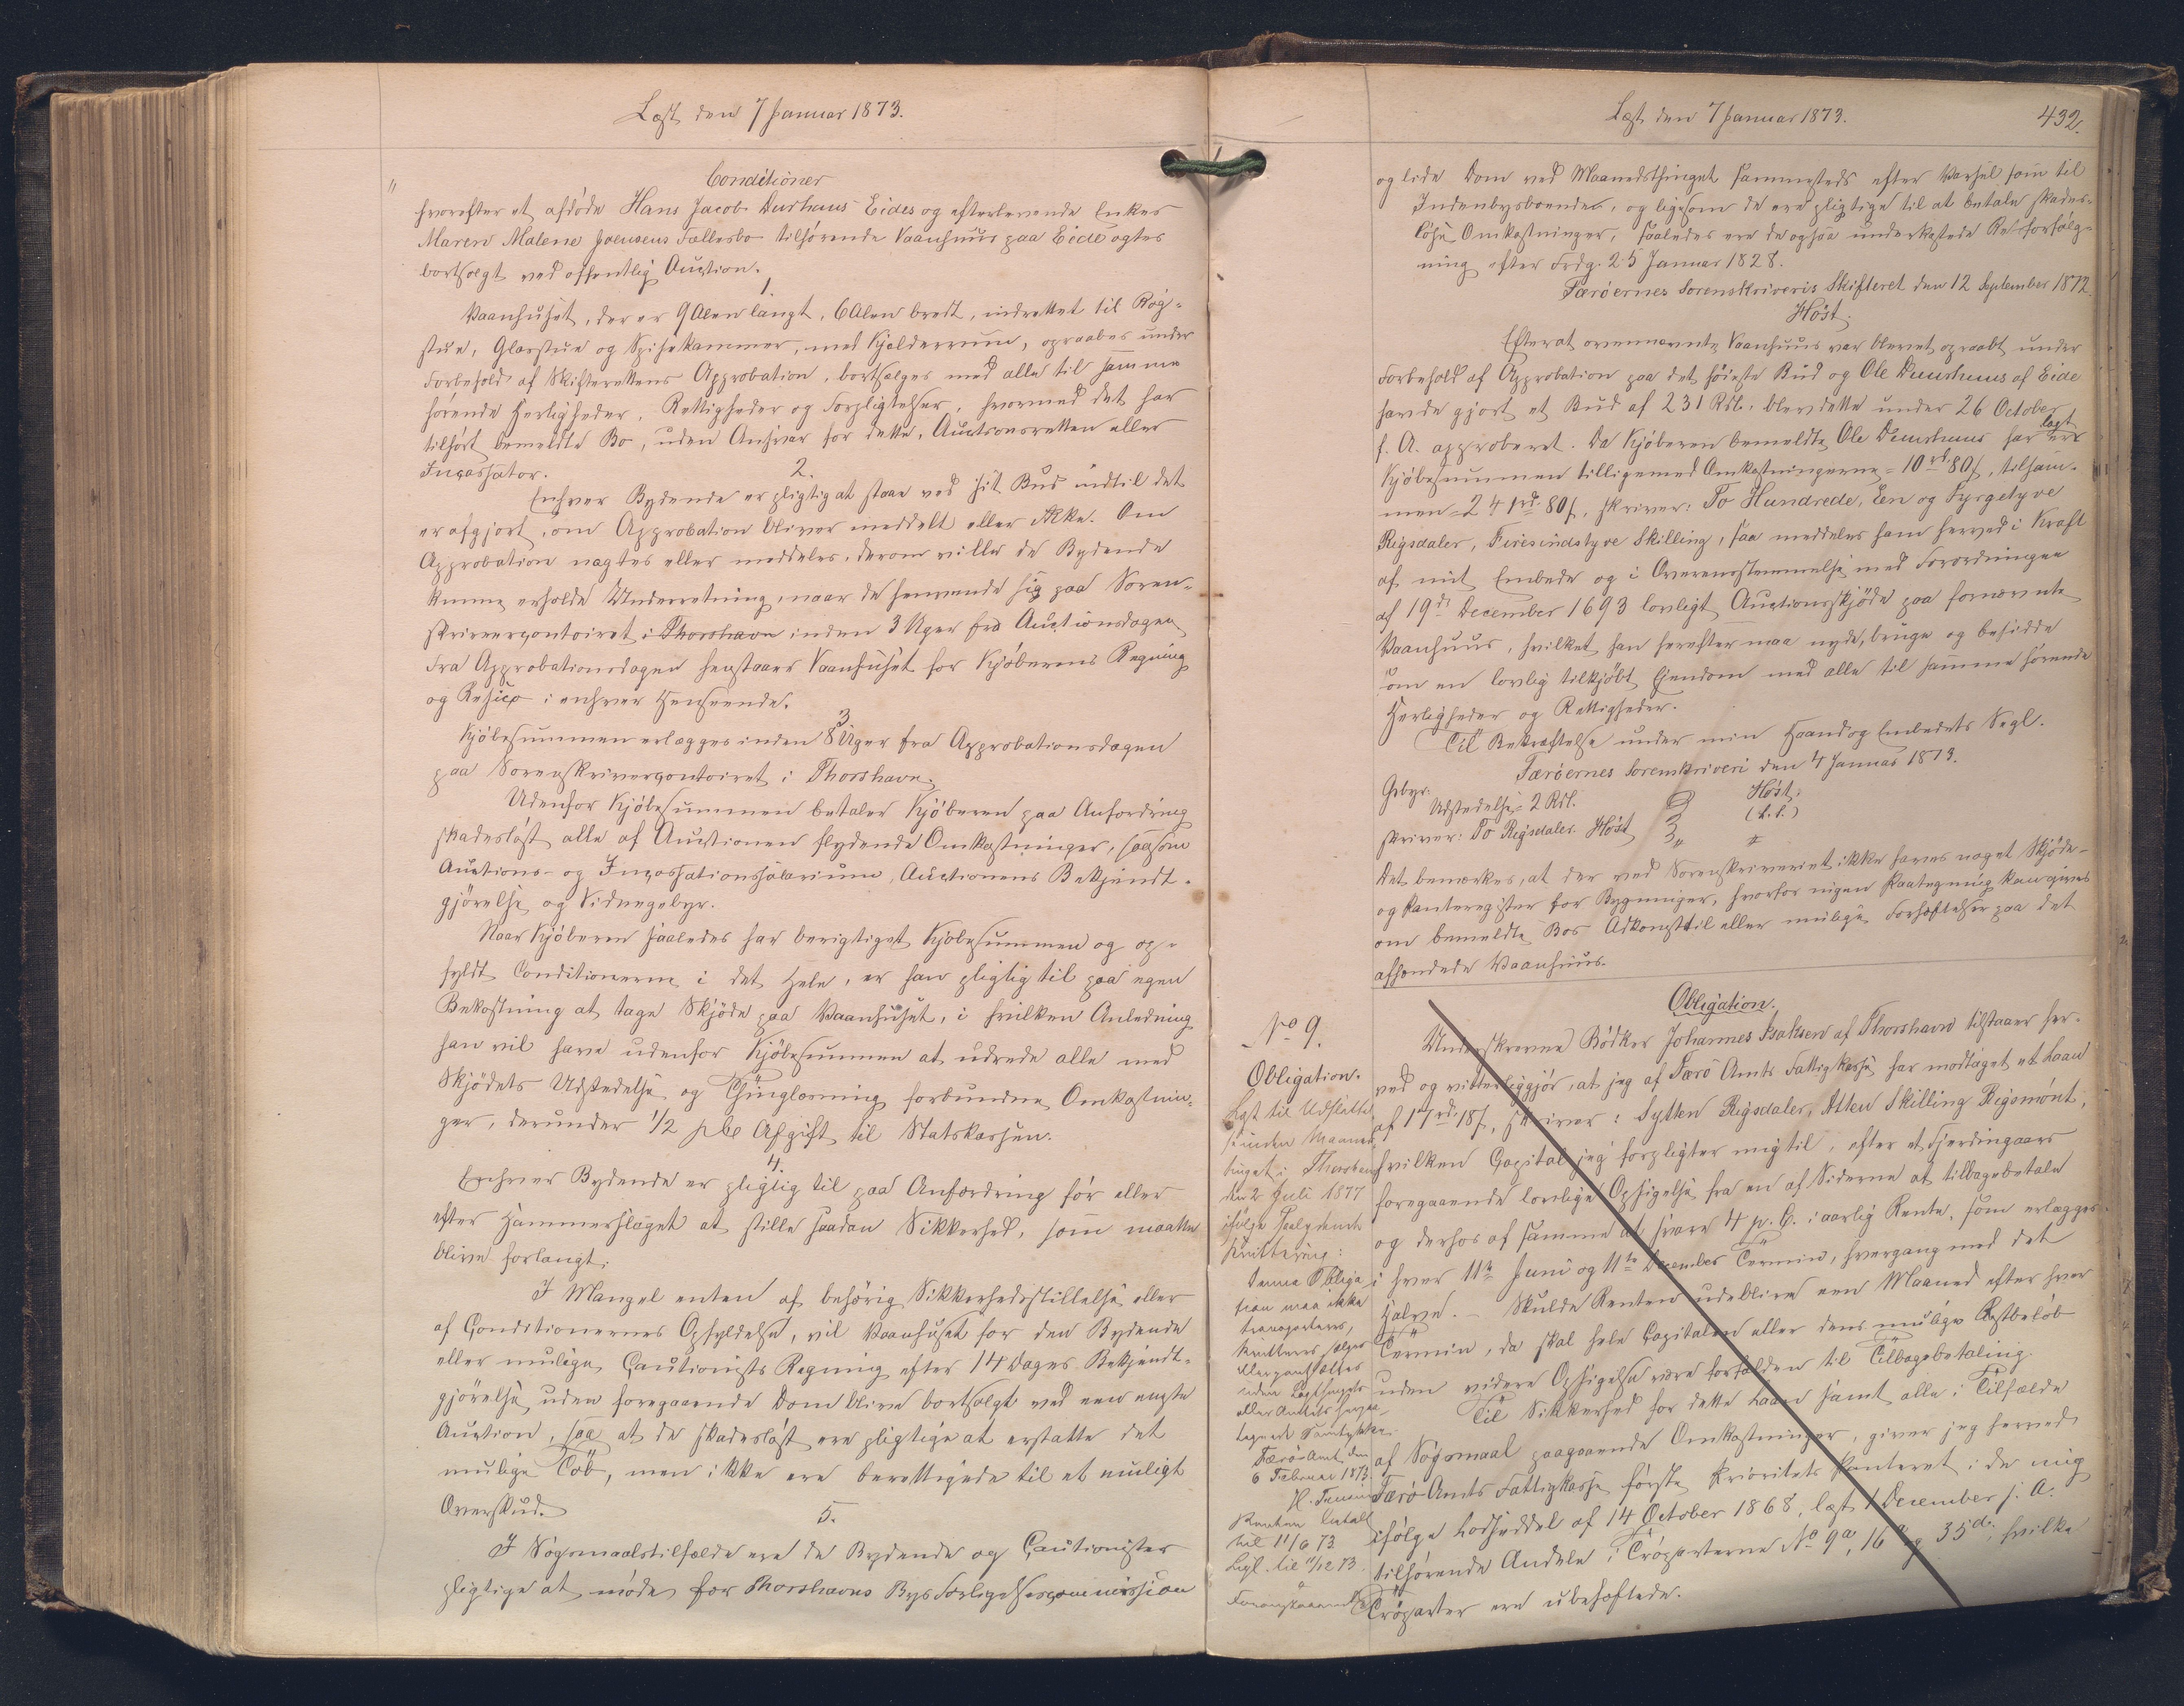 Læst den 7 Januar 1873.
Conditioner
hvorefter et afdöde Hans Jacob Duurhuus Eides og efterlevende Enkes
Maren Malene Joensens Fællesbo tilhörende Vaanhuus paa Eide agtes
bortsolgt ved offentlig Auction.
1.
Vaanhuset, der er 9 Alen langt, 6 Alen bredt, indrettet til Røg-
stue, Glasstue og Spisekammer, med Kjelderrum, opraabes under
Forbehold af Skifterettens Approbation, bortsælges med alle til samme
hörende Herligheder, Rettigheder og Forpligtelser, hvormed det har
tilhört bemeldte Bo, uden Ansvar for dette, Auctionsretten eller
Incassator.
2.
Enhver Bydende er pligtig at staae ved sit Bud indtil det
er afgjort, om Approbation bliver meddelt eller ikke. Om
Approbation nægtes eller meddeles, derom ville de Bydende
kunne erholde Underretning, naar de henvende sig paa Soren-
skrivercontoiret i Thorshavn inden 3 Uger fra Auctionsdagen
Fra Approbationsdagen henstaaer Vaanhuset for Kjöberens Regning
og Resico i enhver Henseende.
3
Kjöbesummen erlægges inden 8 Uger fra Approbationsdagen
paa Sorenskrivercontoiret i Thorshavn.
Udenfor Kjöbesummen betaler Kjöberen paa Anfordring
skadeslöst alle af Auctionen flydende Omkostninger, saasom
Auctions- og Incassationssalarium, Auctionens Bekjendt-
gjörelse og Vidnegebyr.
Naar Kjöberen saaledes har berigtiget Kjöbesummen og op-
fyldt Conditionerne i det Hele, er han pligtig til paa egen
Bekostning at tage Skjöde paa Vaanhuset, i hvilken Anledning
han vil have udenfor Kjöbesummen at udrede alle med
Skjödets Udstedelse og Thinglæsning forbundne Omkostnin-
ger, derunder 1/2 pCt Afgift til Statskassen.
4.
Enhver Bydende er pligtig til paa Anfordring för eller
efter Hammerslaget at stille saadan Sikkerhed, som maatte
blive forlangt.
I Mangel enten af behörig Sikkerhedsstillelse eller
af Conditionernes Opfyldelse, vil Vaanhuset for den Bydende
eller mulige Cautionists Regning efter 14 Dages Bekjendt-
gjörelse uden foregaaende Dom blive bortsolgt ved een eneste
Auction, saa at de skadeslöst ere pligtige at erstatte det
mulige Tab, men ikke ere berettigede til et muligt
Overskud.
5.
I Sögsmaalstilfælde ere de Bydende og Cautionister
pligtige at möde for Thorshavns Byes Forligelsescommission
Læst den 7 Januar 1873.
432.
og lide Dom ved Maanedsthinget sammesteds efter Varsel som til
Indenbysboende, og ligesom de ere pligtige til at betale skades-
löse Omkostninger, saaledes ere de ogsaa underkastede Retsforfölg-
ning efter Frdg. 25 Januar 1828.
Færöernes Sorenskriveris Skifteret den 12 September 1872.
Höst.
Efterat ovennævnte Vaanhuus var blevet opraabt under
Forbehold af Approbation paa det höieste Bud og Ole Duurhuus af Eide
havde gjort et Bud af 231 Rdl., blev dette under 26 October
f. A. approberet. Da Kjöberen bemeldte Ole Duurhuus har erlagt
Kjöbesummen tilligemed Omkostningerne = 10 rd 80 s, tilsam-
men = 241 rd 80 s, skriver: To Hundrede, Een og Fyrgetyve
Rigsdaler, Firesindstyve Skilling, saa meddeles ham herved i Kraft
af mit Embede og i Overensstemmelse med Forordningen
af 19de December 1693 lovligt Auctionsskjöde paa fornævnte
Vaanhuus, hvilket han herefter maa nyde, bruge og besidde
som en lovlig tilkjöbt Eiendom med alle til samme hörende
Herligheder og Rettigheder.
Til Bekræftelse under min Haand og Embedets Segl.
Færöernes Sorenskriveri den 4 Januar 1873.
Höst.
(L.S.)
Gebyr.
Udstedelse = 2 Rdl.
skriver: To Rigsdaler. Höst
Det bemærkes, at der ved Sorenskriveriet ikke haves noget Skjöde-
og Panteregister for Bygninger, hvorfor ingen Paategning kan gives
om bemeldte Bos Adkomst til eller mulige Forhæftelser paa det
afhændede Vaanhuus.
No 9.
Obligation.
Lyst til Udslettelse
inden Maaneds-
tinget i Thorshavn
den 2 Juli 1877
ifølge saalydende
Kvittering:
Denne Obliga
tion maa ikke
transporteres,
kvitteres, sælges
eller pantsættes
uden
eller Amtets
Samtykke.
Færö Amt, den
6 Februar 1873.
Renten betalt
til 11/6 73
Ligl. til 11/12 73
Foranstaaende
Obligation.
Underskrevne Bödker Johannes Isaksen af Thorshavn tilstaaer her-
ved og vitterliggjör, at jeg af Færö Amts Fattigkasse har modtaget et Laan
af 17 rd 18 s, skriver: Sytten Rigsdaler, Atten Skilling Rigsmönt,
hvilken Capital jeg forpligter mig til, efter et Fjerdingaars
foregaaende lovlig Opsigelse fra en af Siderne at tilbagebetale
og derhos af samme at svare 4 p. C. i aarlig Rente, som erlægges
i hver 11te Juni og 11te December Termin, hvergang med det
Halve. – Skulde Renten udeblive een Maaned efter hver
Termin, da skal hele Capitalen eller dens mulige Restbelöb
uden videre Opsigelse være forfalden til Tilbagebetaling.
Til Sikkerhed for dette Laan samt alle i Tilfælde
af Sögsmaal paagaaende Omkostninger, giver jeg herved
Færö Amts Fattigkasse förste Prioritets Panteret i de mig
ifölge Lodseddel af 14 October 1868, læst 1 December s. A.
tilhörende Andele i Tröparterne No 9a, 16 og 35d, hvilke
Tröparter ere ubehæftede.